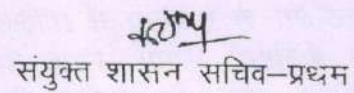 संयुक्त शासन सचिव–प्रथम